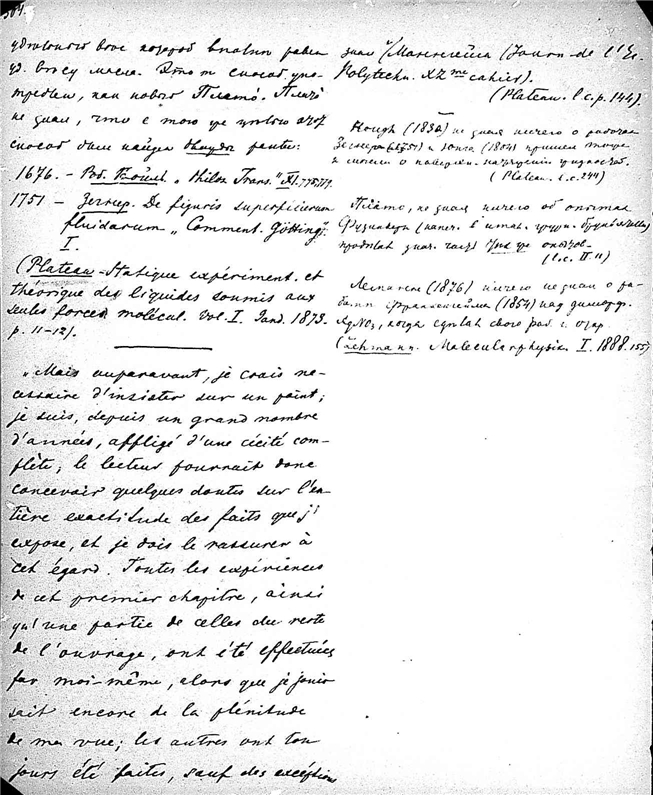 384.
уд. весу масла. Этот способ упо-
треблен, как новый Плато. Плато
не знал, что с тою же целью этот
способ был найден дважды ранее:
1676. – Роб. Бойлем „Philos Trans." XI. 775, 777.
1751 – Зегнер. De figuris superficierum
fluidarum „Comment. Götting".
I.
(Plateau – Statique expériment. et
théorique des liquides soumis aux
seules forces molécul. Vol. I. Gand. 1873.
p. 11–12).
„Mais auparavant, je crois né-
cessaire d'insister sur un point;
je suis, depuis un grand nombre
d'années, affligé d'une cécité com-
plète; le lecteur pourrait donc
concevoir quelques doutes sur l'en-
tière exactitude des faits que j'
expose, et je dois le rassurer à
cet égard. Toutes les expériences
de ce premier chapitre, ainsi
qu'une partie de celles du reste
de l'ouvrage, ont été effectuées
par moi-même, alors que je jouis-
sait encore de la plénitude
de ma vue; les autres ont tou
jours été faites, sauf des exceptions
(Journ. de l'Ec.
Polytechn. XX me cahier).
(Plateau. l.c. p. 144).
(1830) не зная ничего о работах
Зегнера (1751) и Юнга (1804) пришел тоже
к мысли о поверхн. натяжении жидкостей.
(Plateau. l.c. 244)
Плато, не зная ничего об опытах
(l.c. II. 11)
Леманн (1876) ничего не знал о ра-
боте Франкенгейма (1854) над диморф.
AgNO3, когда сделал свою раб.
(Lehmann. Molecularphysik I. 1888. 155)